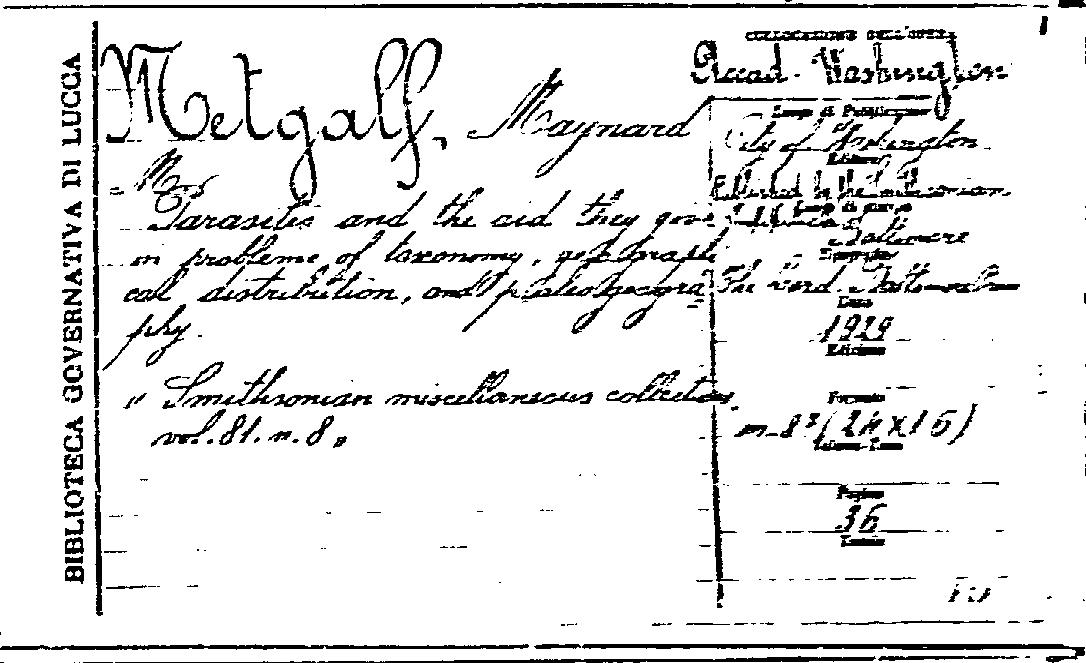 BIBLIOTECA GOVERNATIVA DI LUCCA
Metgalf, Maynard
Parasites and the aid they give
in problems of taxonomy, geographi
cal distribution, and paleogeogra
phy.
"Smithsonian miscellaneous collections
vol. 81. n. 8"
COLLOCAZIONE DELL'OPERA
Accad. Washington
Luogo di Pubblicazione
City of Washington
Editore
by the Smithsonian
Luogo di stampa
Baltimore
Tipografia
The Lord Baltimore
Data
1929
Edizione
Formato
in-8° (24x16)
Pagine
36